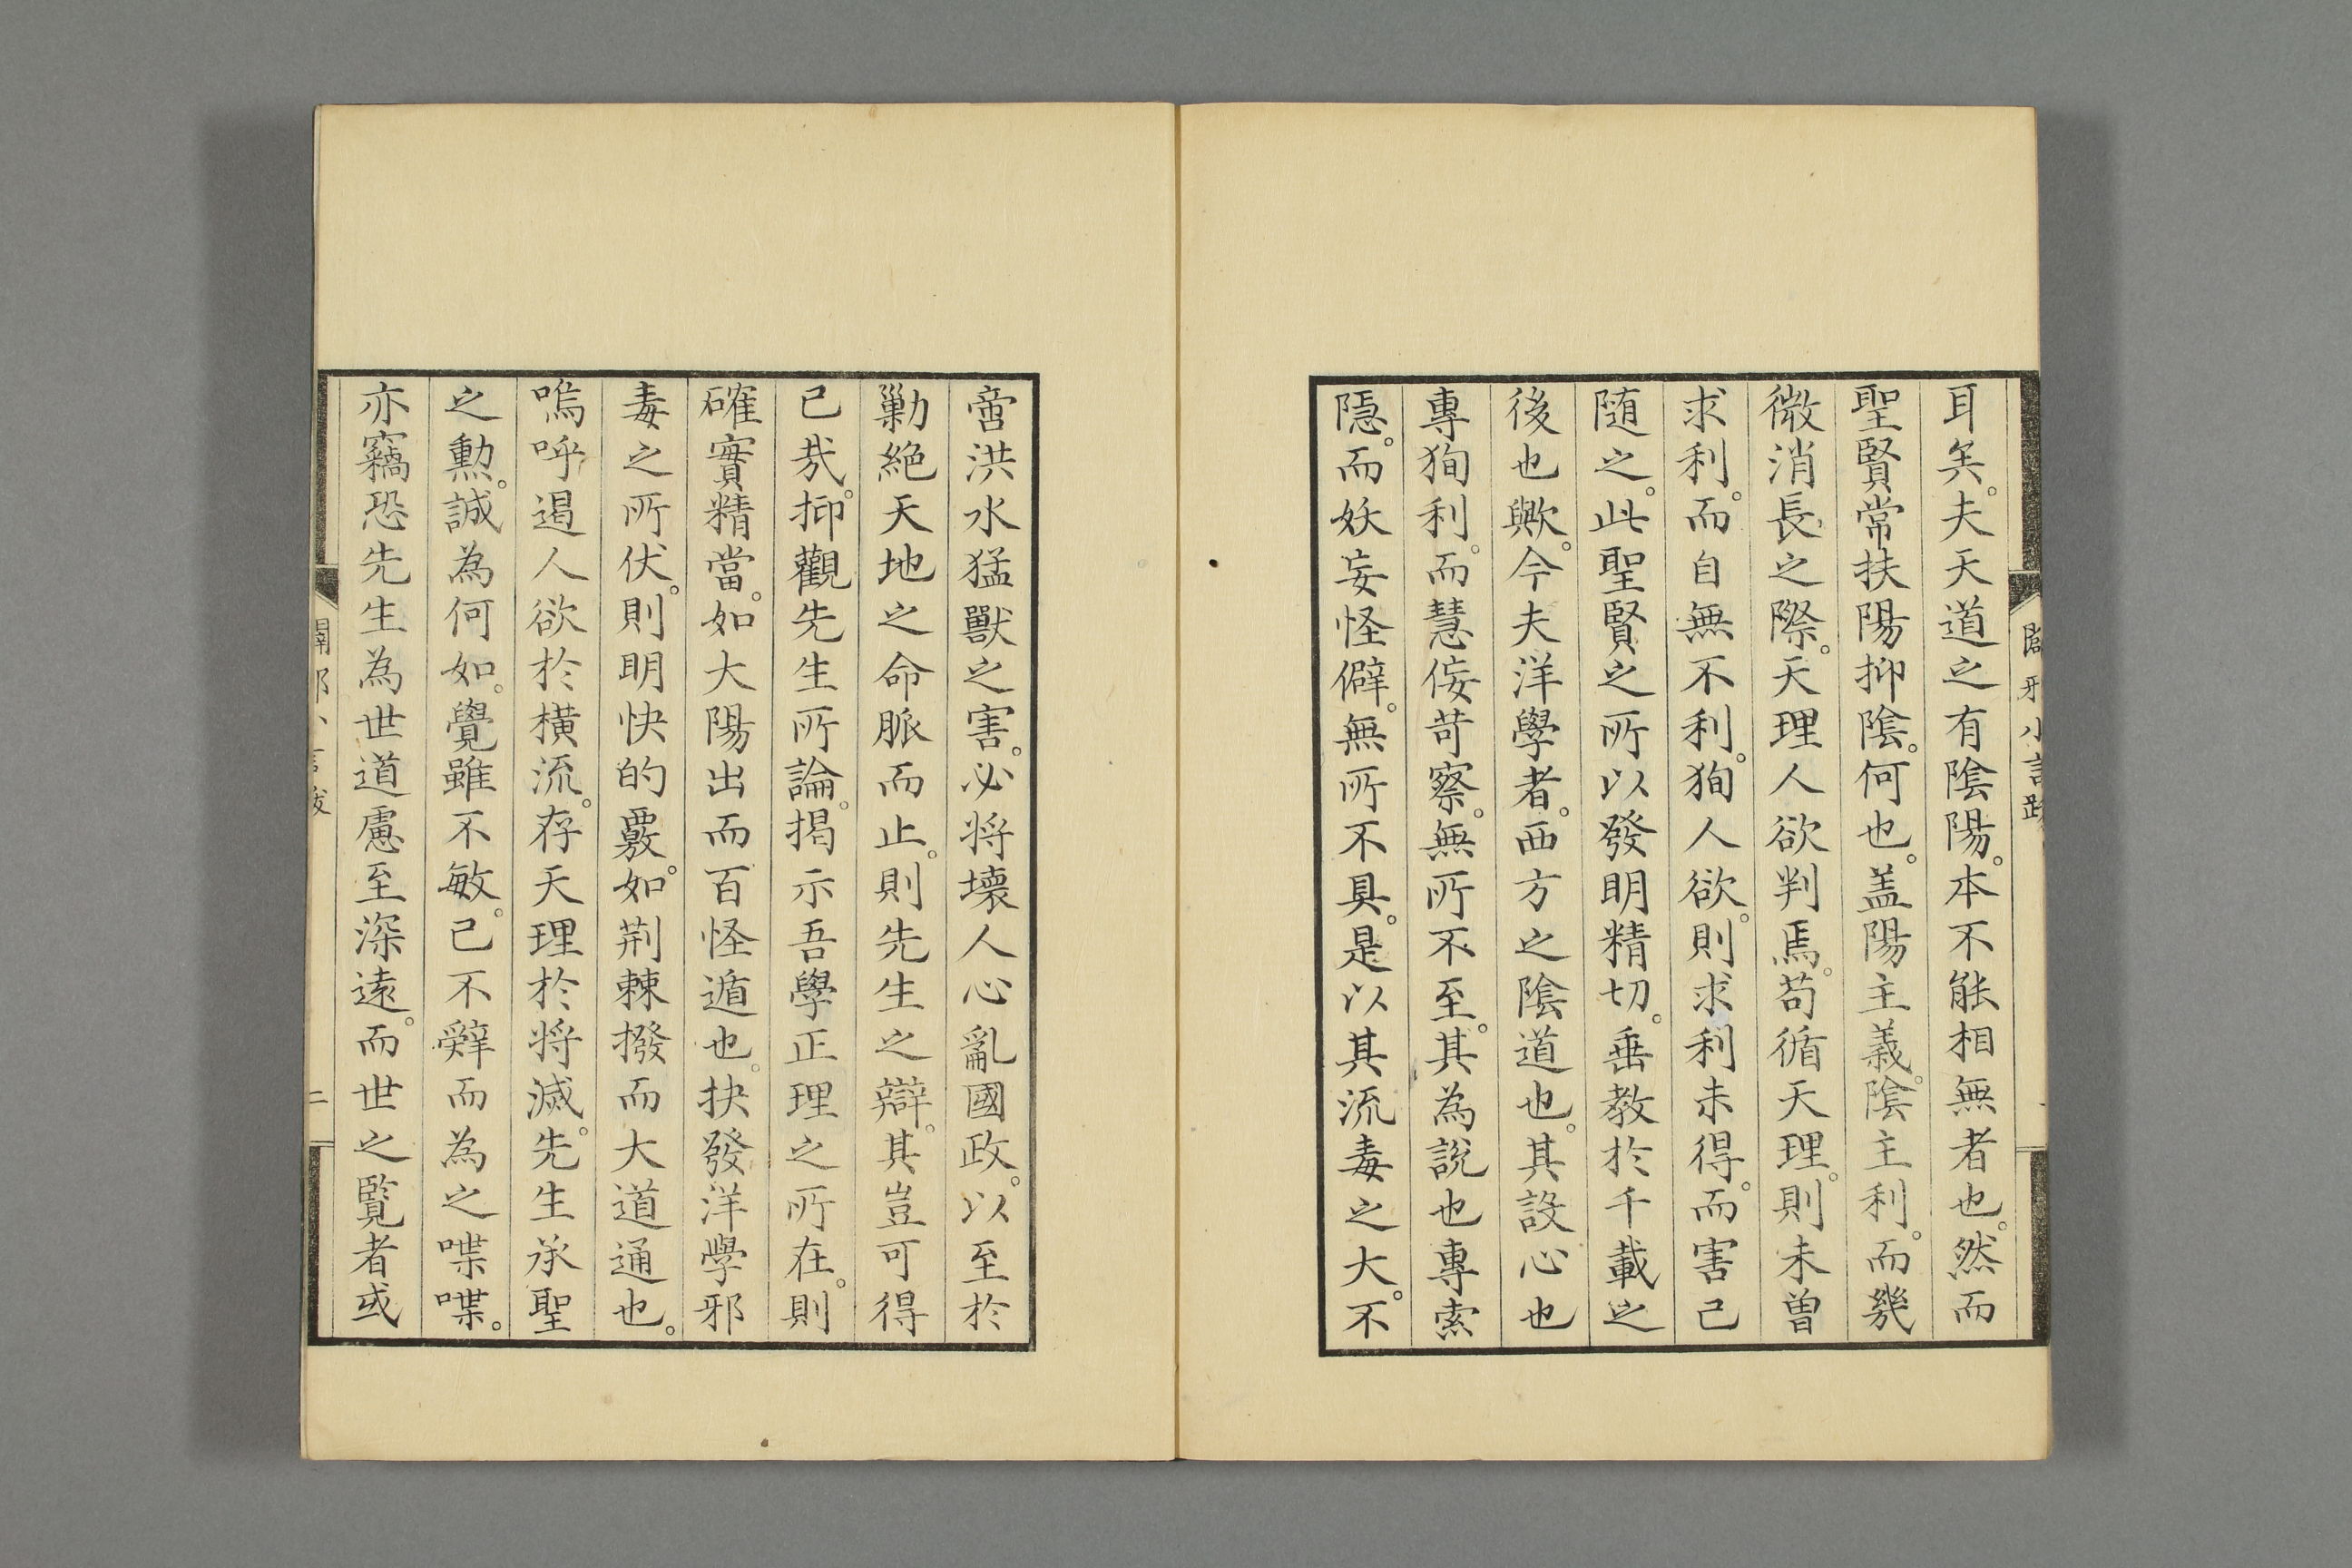 耳矣。夫天道之有陰陽。本不能相無者也。然而
聖賢常扶陽抑陰。何也。盖陽主義。陰主利。而幾
微消長之際。天理人欲判焉。苟循天理。則未曽
求利。而自無不利。狥人欲。則求利未得。而害己
随之。此聖賢之所以發明精切。垂教於千載之
後也歟。今夫洋學者。西方之陰道也。其設心也
專狥利。而慧侫苛察。無所不至。其為說也專索
隱。而妖妄怪僻。無所不具。是以其流毒之大。不
啻洪水猛獸之害。必将壊人心亂國政。以至於
勦絕天地之命脈而止。則先生之辯。其豈可得
已哉。抑觀先生所論。揭示吾學正理之所在。則
確實精當。如大陽出而百怪遁也。抉發洋學邪
毒之所伏。則明快的覈。如荆棘撥而大道通也。
嗚呼遏人欲於橫流。存天理於将滅。先生承聖
之勲。誠為何如。覺雖不敏。己不辤而為之喋喋。
亦竊恐先生為世道慮至深遠。而世之覧者或
闢邪小言跋
二